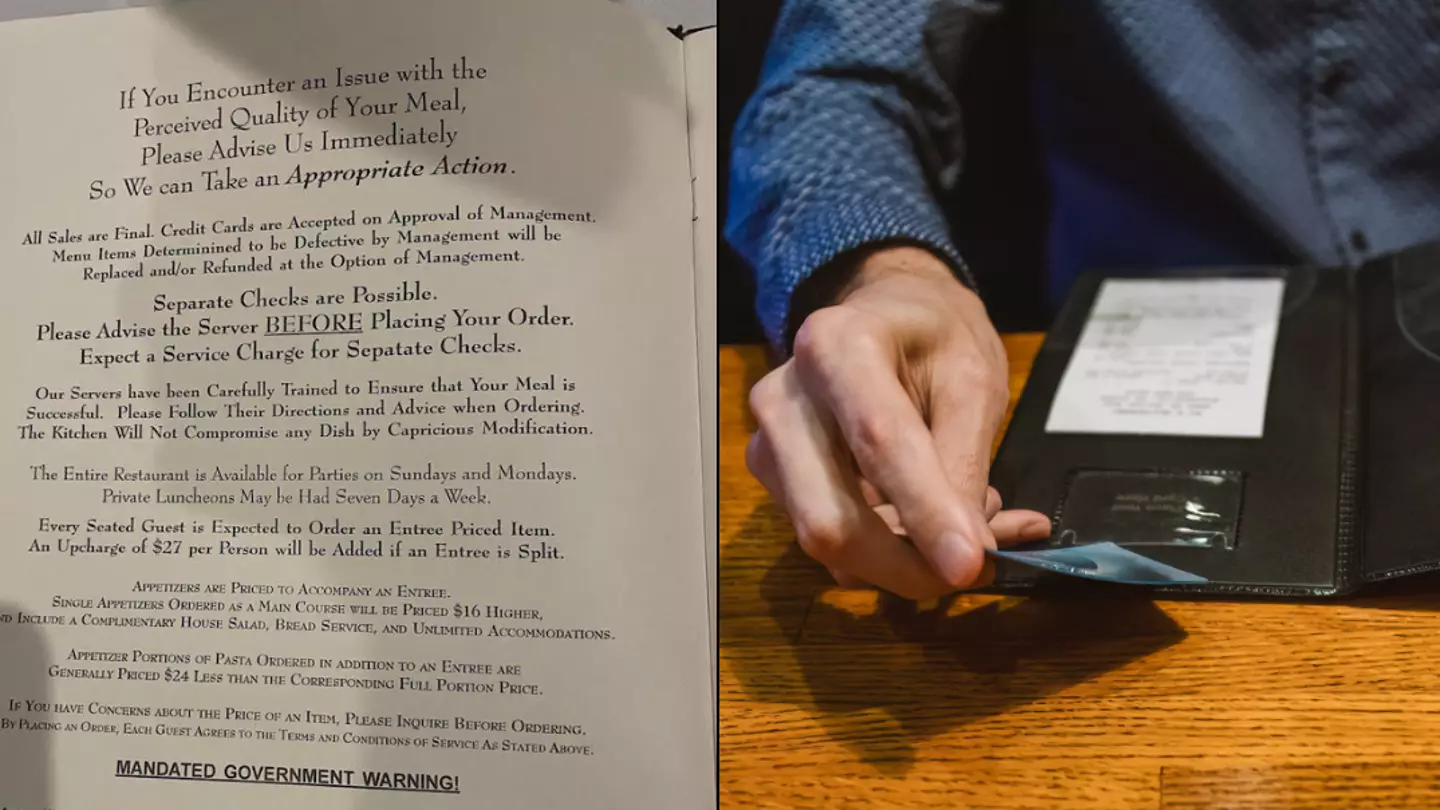 If You Encounter an Issue with the
Perceived Quality of Your Meal,
Please Advise Us Immediately
So We can Take an Appropriate Action.
All Sales are Final. Credit Cards are Accepted on Approval of Management.
Menu Items Determinined to be Defective by Management will be
Replaced and/or Refunded at the Option of Management.
Separate Checks are Possible.
Please Advise the Server BEFORE Placing Your Order.
Expect a Service Charge for Sepatate Checks.
Our Servers have been Carefully Trained to Ensure that Your Meal is
Successful. Please Follow Their Directions and Advice when Ordering.
The Kitchen Will Not Compromise any Dish by Capricious Modification.
The Entire Restaurant is Available for Parties on Sundays and Mondays.
Private Luncheons May be Had Seven Days a Week.
Every Seated Guest is Expected to Order an Entree Priced Item.
An Upcharge of $27 per Person will be Added if an Entree is Split.
Appetizers are Priced to Accompany an Entree.
Single Appetizers Ordered as a Main Course will be Priced $16 Higher,
nd Include a Complimentary House Salad, Bread Service, and Unlimited Accommodations.
Appetizer Portions of Pasta Ordered in addition to an Entree are
Generally Priced $24 Less than the Corresponding Full Portion Price.
If You have Concerns about the Price of an Item, Please Inquire Before Ordering.
By Placing an Order, Each Guest Agrees to the Terms and Conditions of Service As Stated Above.
MANDATED GOVERNMENT WARNING!